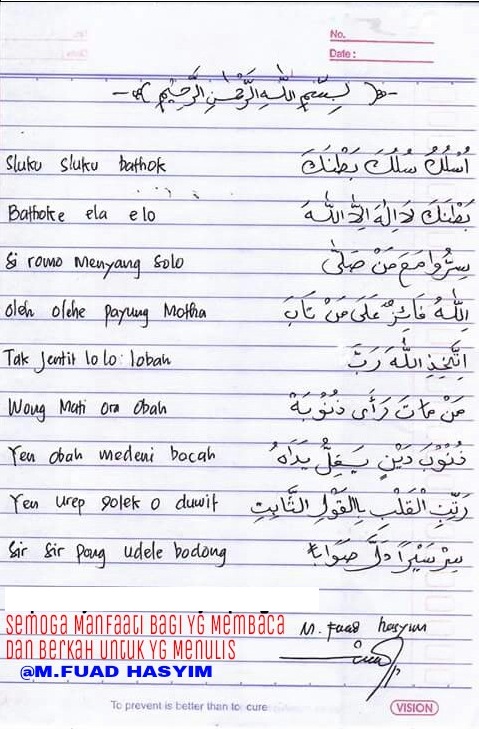 No.
Date :
بِسْمِ اللهِ الرَّحْمٰنِ الرَّحِيْمِ
Sluku sluku bathok أُسْلُكْ سُلُكَ بَطْنَكَ
Bathoke ela elo بَطْنَكَ لَا اِلٰهَ اِلَّا اللهَ
Si romo menyang solo سِرُّوا مَعَ مَنْ صَلَّى
oleh olehe payung Motha اِلٰلهُ فَائِزٌ عَلَى مَنْ تَابَ
Tak jentit lo lo: lobah اِتَّخِذِ اللهَ رَبَّ
Wong Mati ora obah مَنْ مَاتَ رَأَى ذُنُوْبَهْ
Yen obah medeni bocah ذُنُوْبَ دَيْنٍ يَغِلُّ يَدَاهُ
Yen urep golek o duwit رَبِّتِ الْقَلْبِ بِالْقَوْلِ الثَّابِتِ
Sir sir pong udele bodong سِرْ سَيْرًا دَلَّ صَوَابًا
Semoga Manfaati bagi yg Membaca
dan berkah untuk yg Menulis
@M.FUAD HASYIM
M. Fuad hasyim
To prevent is better than to cure
VISION